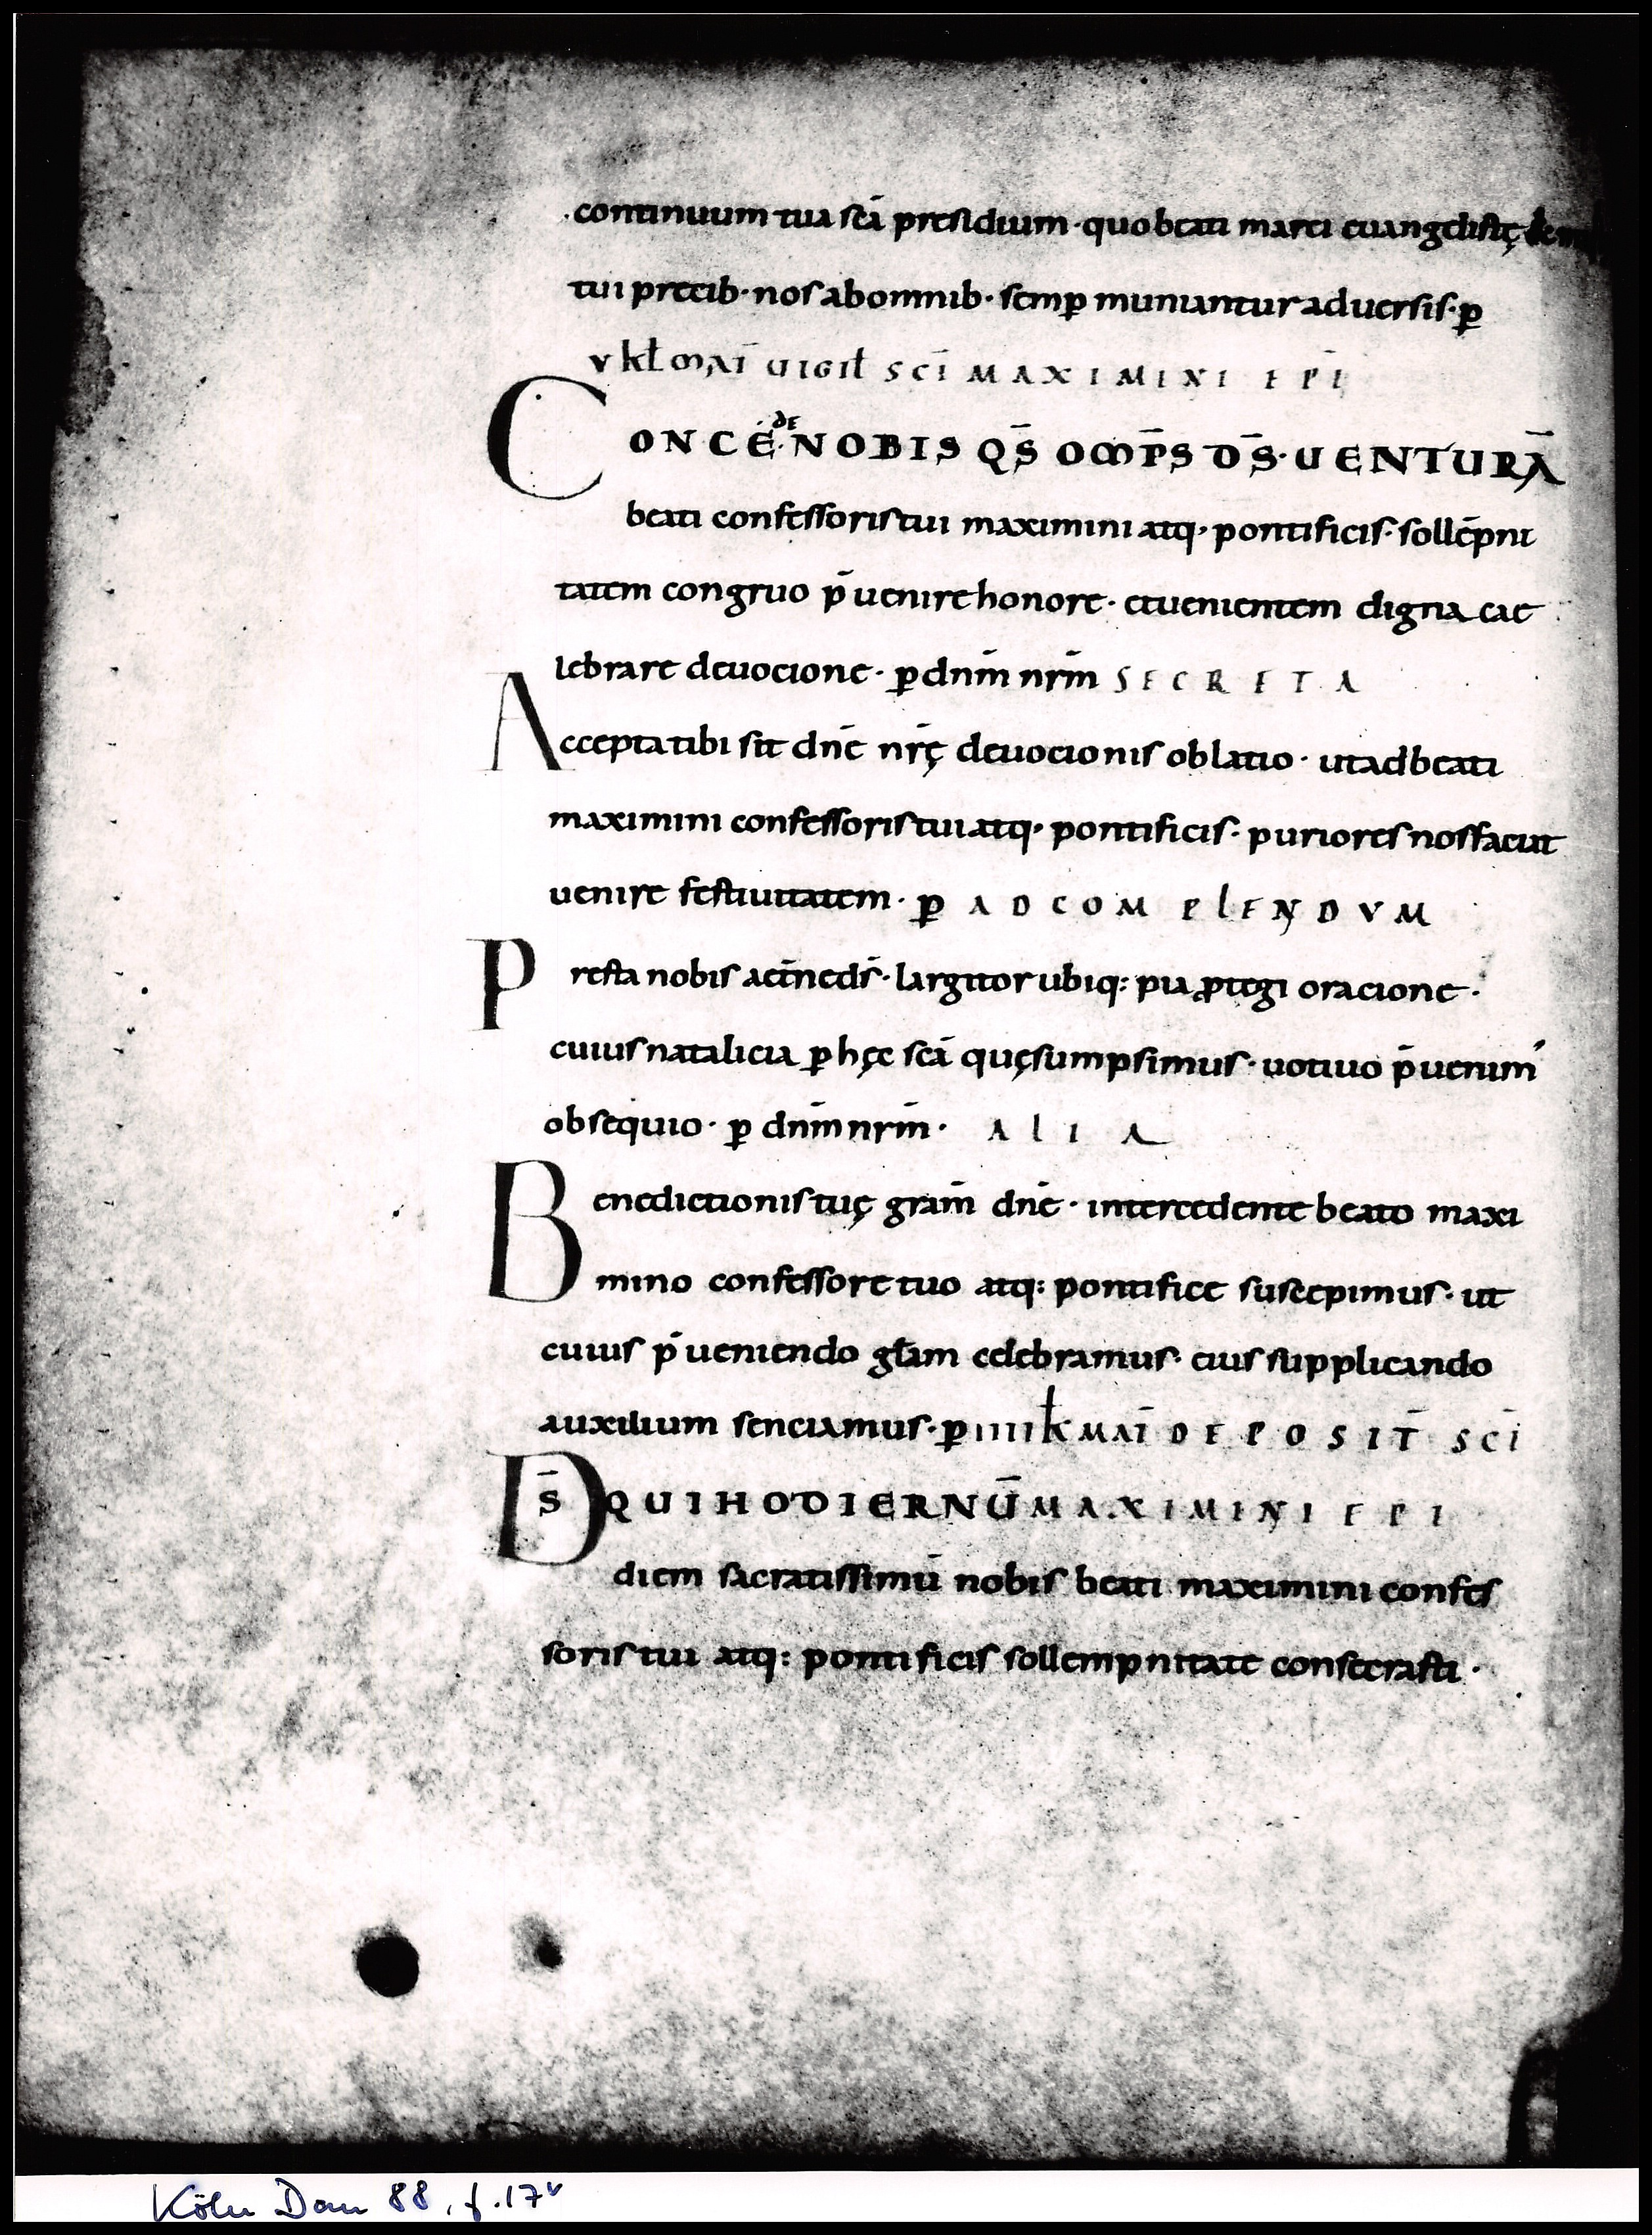 continuum tua sc̄a presidium · quo beati marci euangelistę
tui precib · nos ab omnib · semꝑ muniantur aduersis · ꝑ
V kƚ mai uigiƚ sc̄i MAXIMINI EP̄I
CONCEDE NOBIS QS̄ OMP̄S DS̄ · UENTURĀ
beati confessoris tui maximini atq · pontificis · sollēpni
tatem congruo p̄uenire honore · et uenientem digna cae
lebrare deuocione · ꝑ dnm̄ nrm̄ SECRETA
Accepta tibi sit dnē nrę̄ deuocionis oblatio · ut ad beati
maximini confessoris tui atq · pontificis · puriores nos faciat
uenire festiuitatem · ꝑ AD COMPLENDVM
Presta nobis aetn̄e ds̄ · largitor ubiq: pia ꝓtegi oracione ·
cuius natalicia ꝑ hęc sc̄a quę sumpsimus · uotiuo p̄uenim'
obsequio · ꝑ dnm̄ nrm̄ · ALIA
Benedictionis tuę gram̄ dnē · intercedente beato maxi
mino confessore tuo atq: pontifice suscepimus · ut
cuius p̄ueniendo gƚam celebramus · eius supplicando
auxilium senciamus · ꝑ IIII k MAI DEPOSIT̄ SC̄I
DS̄ QUI HODIERNŪ MAXIMINI EPI
diem sacratissimū nobis beati maximini confes
soris tui atq: pontificis sollempnitate consecrasti ·
Köln Dom 88, f. 17v